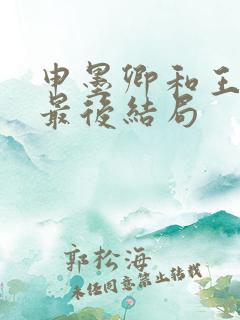 申墨卿和王
最後結局
郭松海
未经同意禁止转载